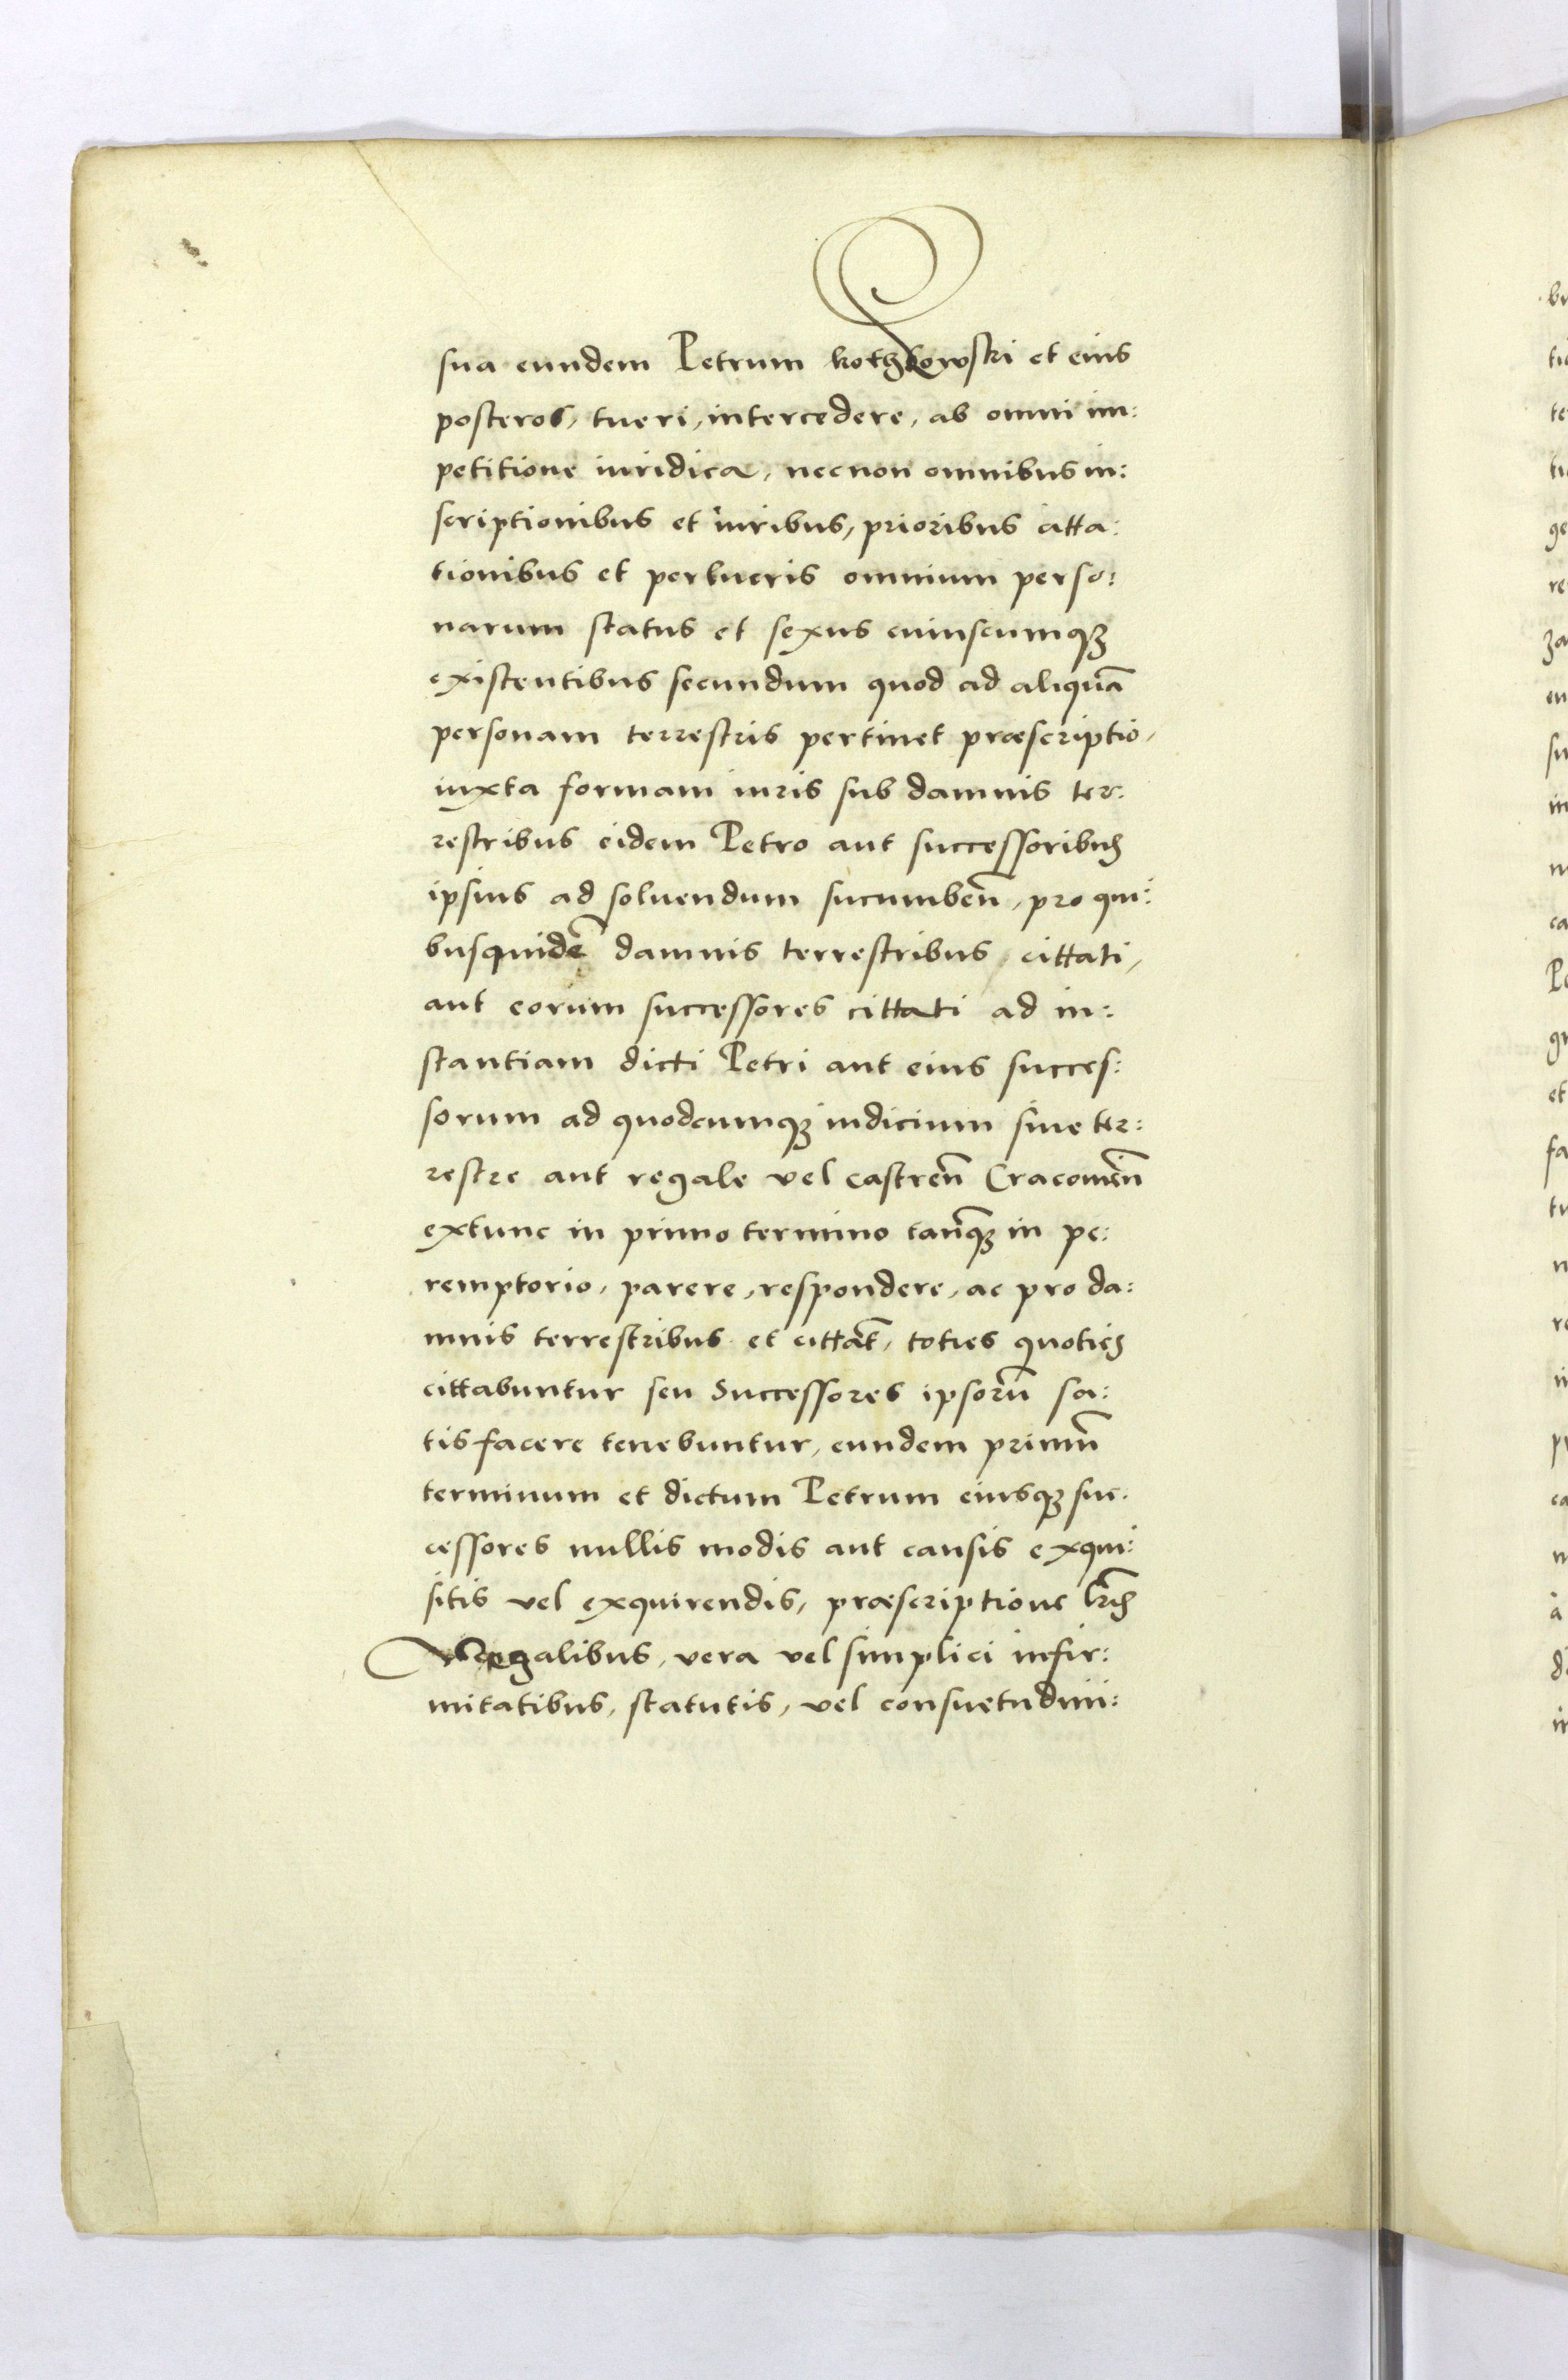 sua eundem Petrum kothkowski et eius
posteros, tueri, intercedere, ab omni im:
petitione iuridica, necnon omnibus in:
scriptionibus et iuribus, prioribus citta:
tionibus et perlucris omnium perso:
narum status et sexus cuiuscumqꝫ
existentibus secundum quod ad aliquā
personam terrestris pertinet præscriptio,
iuxta formam iuris sub damnis ter:
restribus eidem Petro aut successoribus
ipsius ad soluendum sucumbeñ, pro qui:
busquidē damnis terrestribus, cittati,
aut eorum successores cittati ad in:
stantiam dicti Petri aut eius succes:
sorum ad quodcumqꝫ iudicium siue ter:
restre aut regale vel castreñ Cracouieñ
extunc in primo termino tanqꝫ in pe:
remptorio, parere, respondere, ac pro da:
mnis terrestribus et cittat̃, toties quoties
cittabuntur seu Successores ipsorū sa:
tisfacere tenebuntur, eundem primū
terminum et dictum Petrum eiusqꝫ suc:
cessores nullis modis aut causis exqui:
sitis vel exquirendis, præscriptione lr̃is
Regalibus, vera vel simplici infir:
mitatibus, statutis, vel consuetudini: